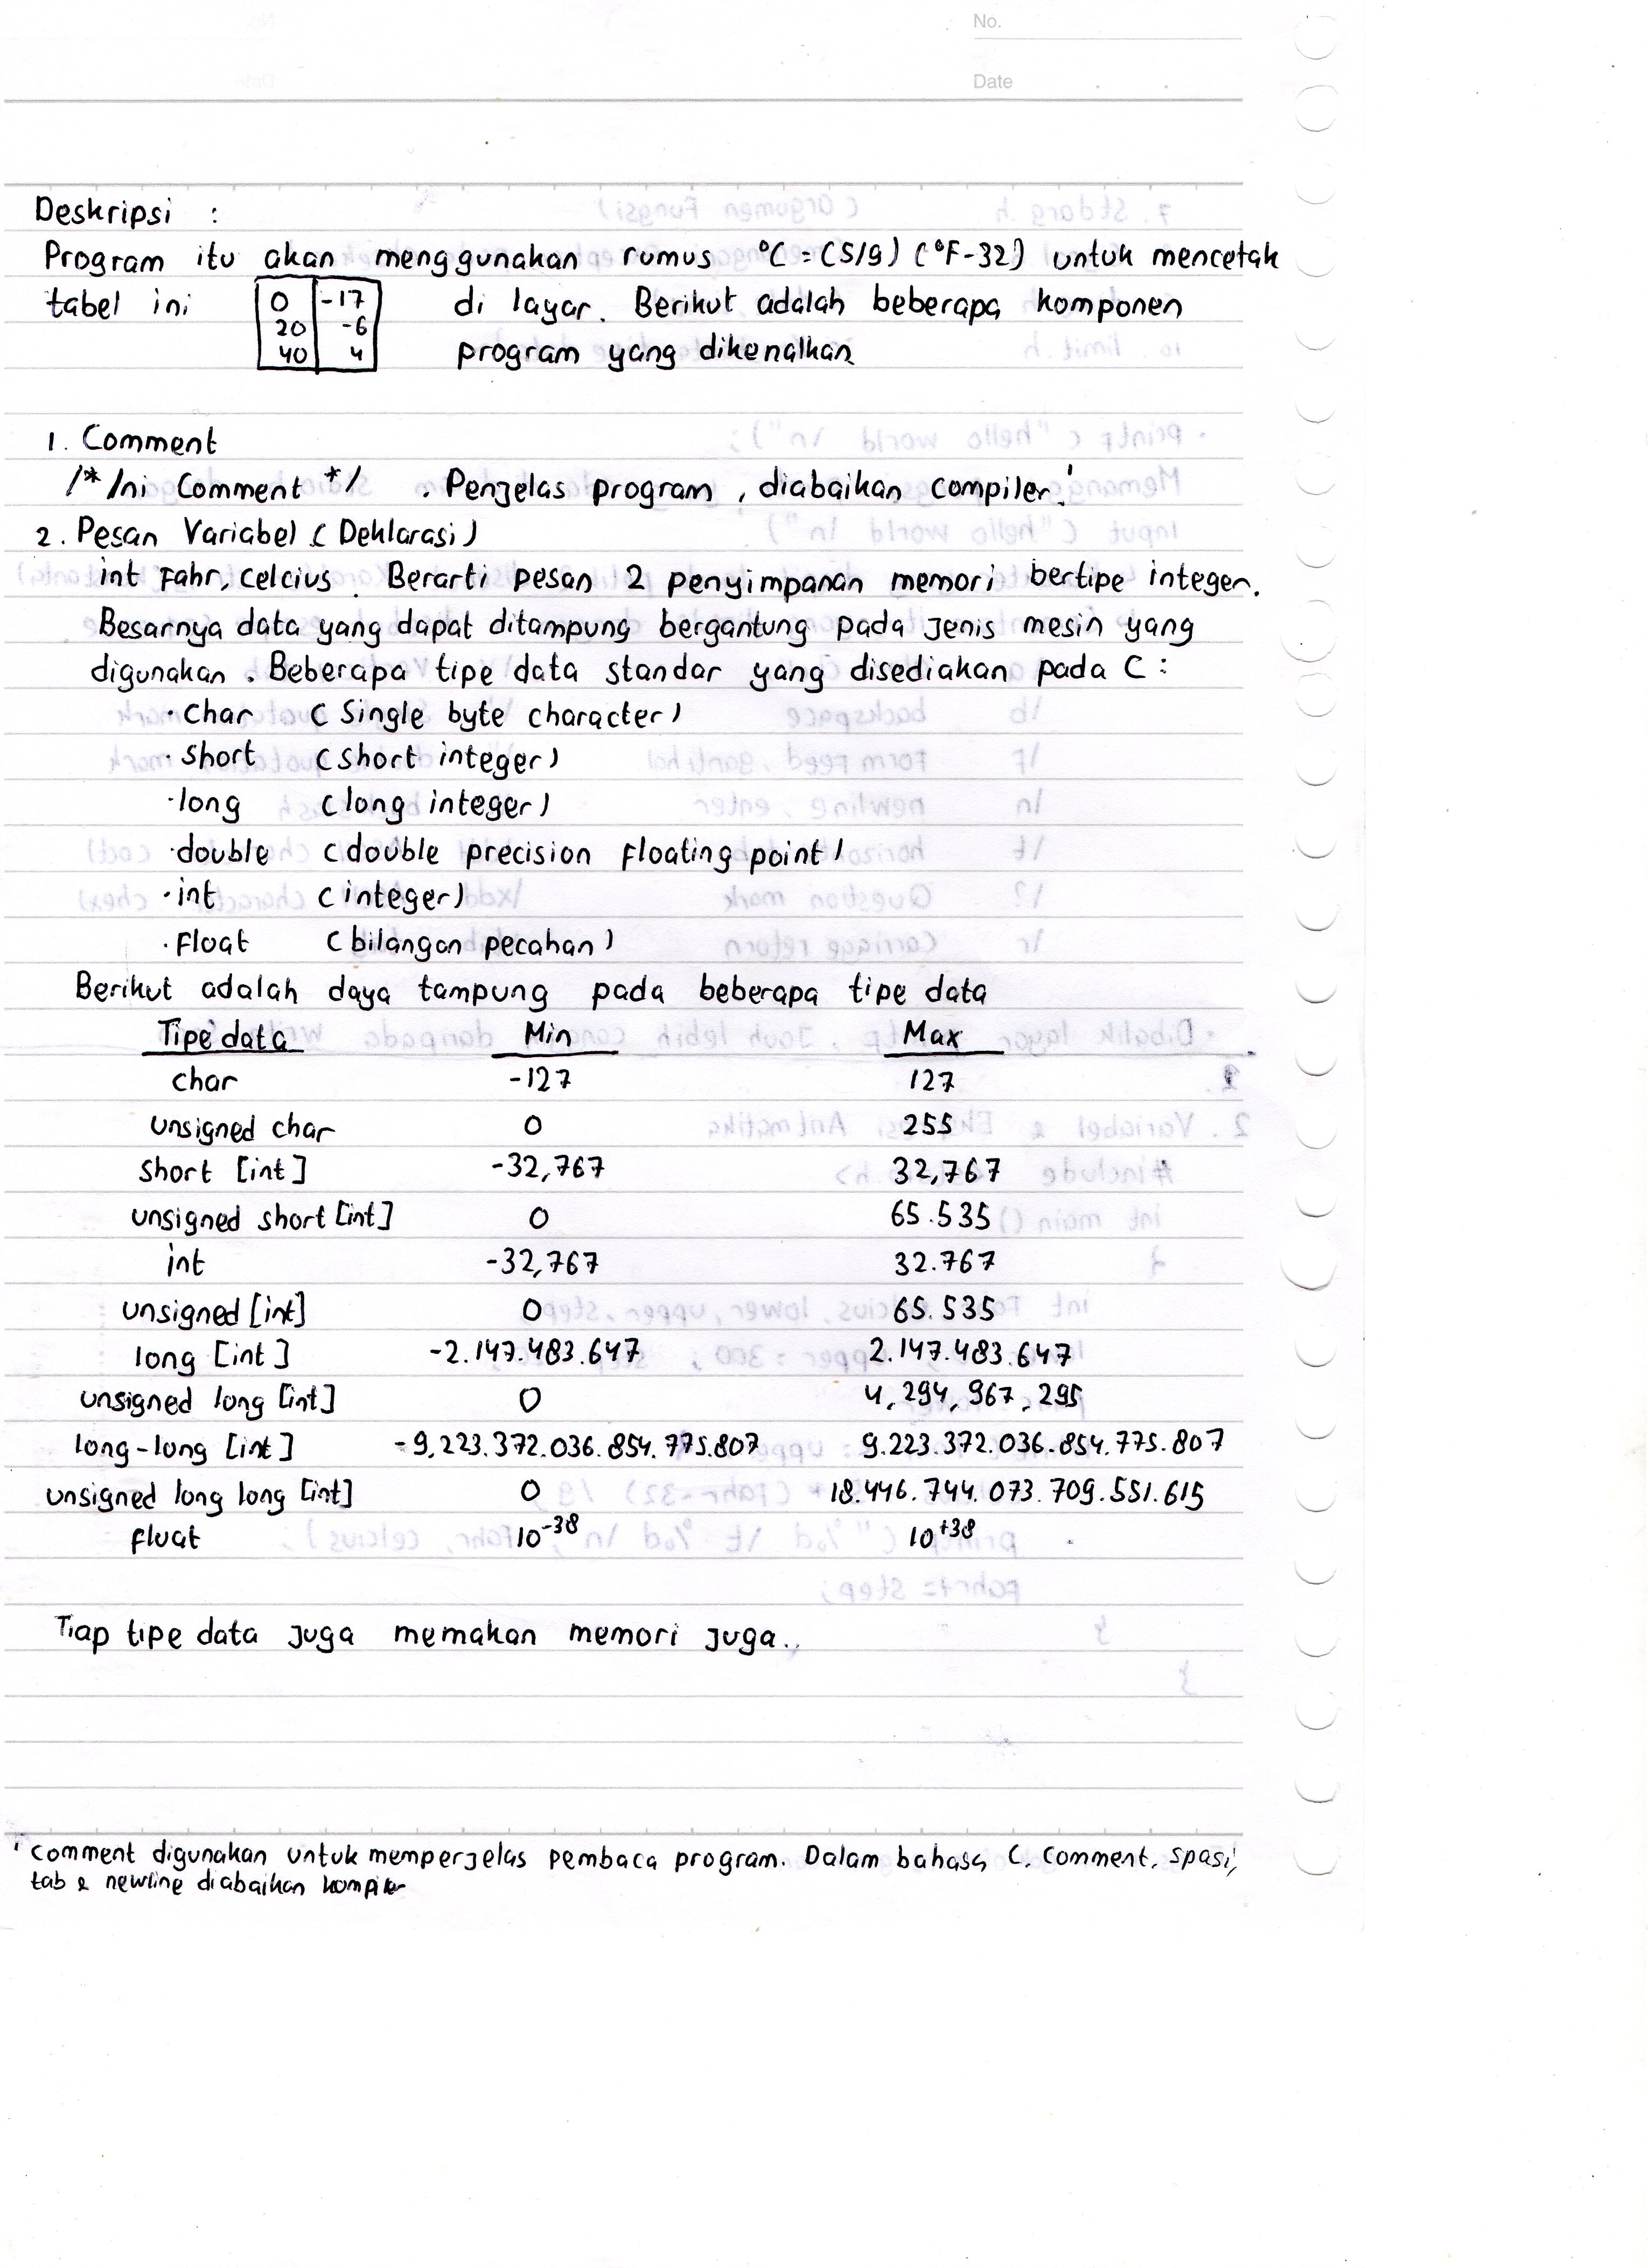 No.
Date
Deskripsi :
Program itu akan menggunakan rumus °C = (5/9) (°F-32) untuk mencetak
tabel ini 0 -17 di layar. Berikut adalah beberapa komponen
20 -6
40 4 program yang dikenalkan
1. Comment
/* Ini Comment */ . Penjelas program, diabaikan compiler.¹
2. Pesan Variabel (Deklarasi)
int Fahr, celcius. Berarti pesan 2 penyimpanan memori bertipe integer.
Besarnya data yang dapat ditampung bergantung pada jenis mesin yang
digunakan. Beberapa tipe data standar yang disediakan pada C :
· Char (Single byte character)
· short (short integer)
· long (long integer)
· double (double precision floating point)
· int (integer)
· Float (bilangan pecahan)
Berikut adalah daya tampung pada beberapa tipe data
Tipe data Min Max
char -127 127
unsigned char 0 255
short [int] -32,767 32,767
unsigned short [int] 0 65.535
int -32,767 32.767
unsigned [int] 0 65.535
long [int] -2.147.483.647 2.147.483.647
unsigned long [int] 0 4,294,967,295
long-long [int] -9,223.372.036.854.775.807 9.223.372.036.854.775.807
unsigned long long [int] 0 18.446.744.073.709.551.615
float 10⁻³⁸ 10⁺³⁸
Tiap tipe data juga memakan memori juga..
¹ Comment digunakan untuk memperjelas pembaca program. Dalam bahasa C, Comment, spasi,
tab & newline diabaikan